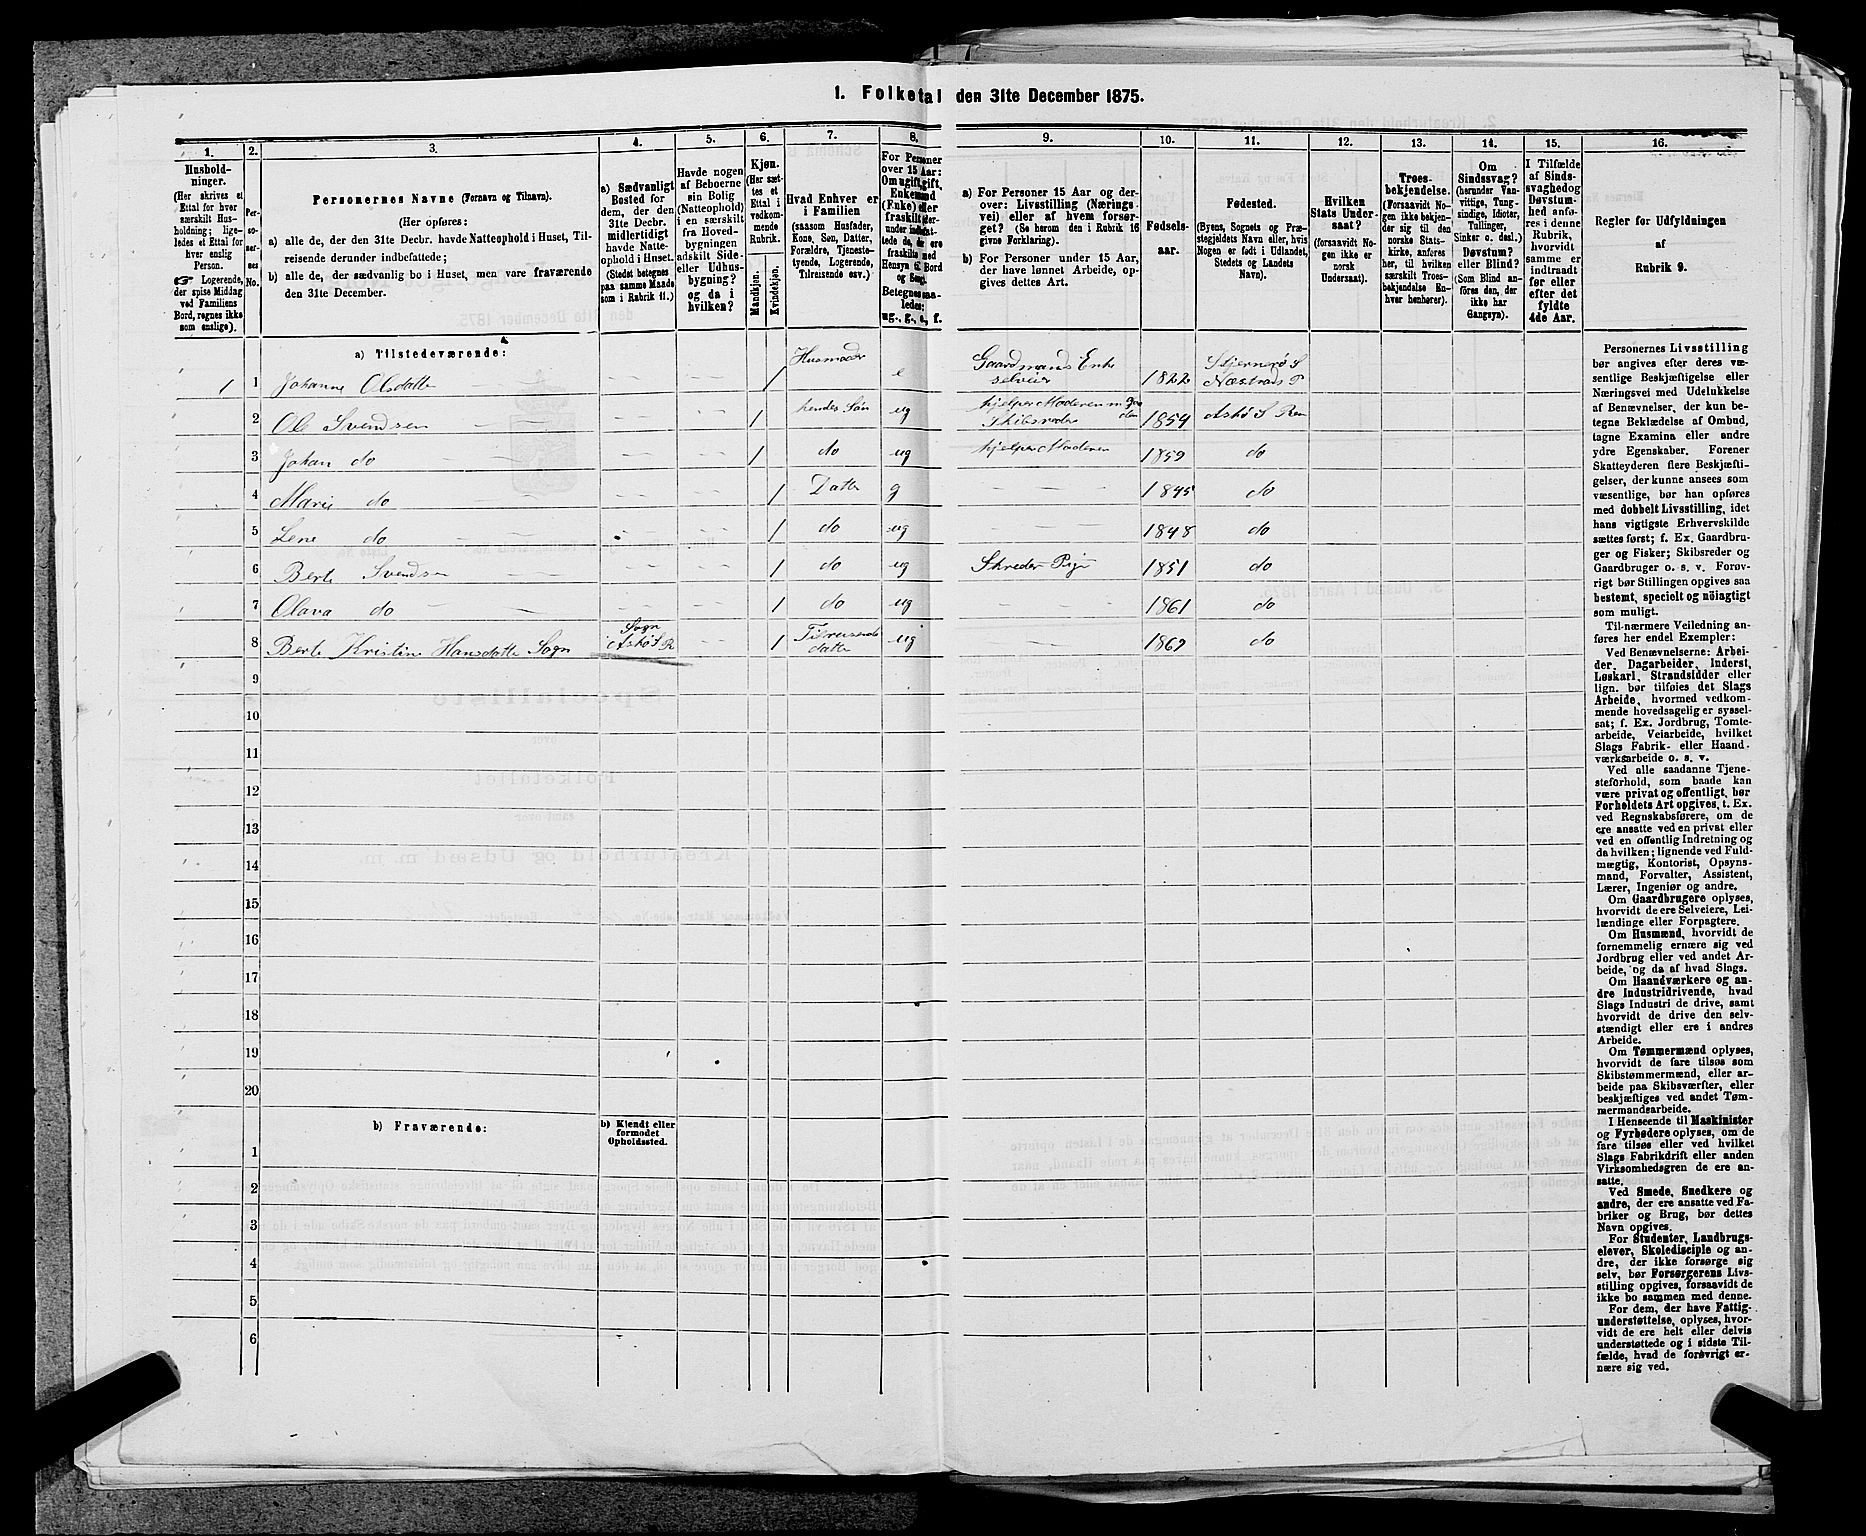 1. Folketal den 31te December 1875.
1.
Hushold-
ninger.
(Her skrives et
Ettal for hver
særskilt Hus-
holdning; lige-
ledes et Ettal for
hver enslig
Person.
☞ Logerende,
der spise Middag
ved Familiens
Bord, regnes ikke
som enslige).
2.
Per-
so-
ner-
nes
No.
3.
Personernes Navne (Fornavn og Tilnavn).
(Her opføres:
a) alle de, der den 31te Decbr. havde Natteophold i Huset, Til-
reisende derunder indbefattede;
b) alle de, der sædvanlig bo i Huset, men vare fraværende
den 31te December.
4.
a) Sædvanligt
Bosted for
dem, der den
31te Decbr.
midlertidigt
havde Natte-
ophold i Huset.
(Stedet betegnes
paa samme Maade
som i Rubrik 11.)
5.
Havde nogen
af Beboerne
sin Bolig
(Natteophold)
i en særskilt
fra Hoved-
bygningen
adskilt Side-
eller Udhus-
bygning?
og da i
hvilken?
6.
Kjøn.
(Her sæt-
tes et
Ettal i
vedkom-
mende
Rubrik.
Mandkjøn.
Kvindekjøn.
7.
Hvad Enhver er
i Familien
(saasom Husfader,
Kone, Søn, Datter,
Forældre, Tjeneste-
tyende, Logerende,
Tilreisende osv.)
8.
For Personer
over 15 Aar:
Om ugift, gift,
Enkemand
(Enke) eller
fraskilt
Betegnes saa-
ledes:
ug., g., e., f.
9.
a) For Personer 15 Aar og der-
over: Livsstilling (Nærings-
vei) eller af hvem forsør-
get? (Se herom den i Rubrik 16
givne Forklaring).
b) For Personer under 15 Aar,
der have lønnet Arbeide, op-
gives dettes Art.
10.
Fødsels-
aar.
11.
Fødested.
(Byens, Sognets og Præ-
stegjeldets Navn eller, hvis
Nogen er født i Udlandet,
Stedets og Landets
Navn).
12.
Hvilken
Stats Under-
saat?
(forsaavidt No-
gen ikke er
norsk
Undersaat).
13.
Troes-
bekjendelse.
(Forsaavidt No-
gen ikke bekjen-
der sig til den
norske Stats-
kirke, anføres
her, til hvilken
særskilt Troes-
bekjendelse En-
hver henhører).
14.
Om
Sindssvag?
(herunder Van-
vittige, Tung-
sindige, Idioter,
Tullinger,
Sinker o. desl.)
Døvstum?
eller Blind?
(Som Blind an-
føres den, der
ikke har
Gangsyn).
15.
I Tilfælde
af Sinds-
svaghed og
Døvstum-
hed anfø-
res i denne
Rubrik,
hvorvidt
samme er
indtraadt
før eller
efter det
fyldte
4de Aar.
16.
Regler for Udfyldningen
af
Rubrik 9.
a) Tilstedeværende:
1 1 Johanne Olsdatter 1 Husmoder e Gaardmands Enke selveier 1822 Stjernerø S Næstrans P
2 Ole Svendsen 1 hendes Søn ug hjelper Moderen m Gaarden Skibsreder 1854 Askø S Ren
3 Johan do 1 do ug hjelper Moderen 1859 do
4 Marie do 1 Datter g 1845 do
5 Lene do 1 do ug 1848 do
6 Berte Svendsen 1 do ug Skreder Pige 1851 do
7 Olava do 1 do ug 1861 do
8 Berte Kristine Hansdatter Sogn Sogn Askø S R 1 Tilreisende datter ug 1869 do
9
10
11
12
13
14
15
16
17
18
19
20
b) Fraværende:
b) Kjendt eller
formodet
Opholdssted.
1
2
3
4
5
6
Personernes Livsstilling
bør angives efter deres væ-
sentlige Beskjæftigelse eller
Næringsvei med Udelukkelse
af Benævnelser, der kun be-
tegne Beklædelse af Ombud,
tagne Examina eller andre
ydre Egenskaber. Forener
Skatteyderen flere Beskjæfti-
gelser, der kunne ansees som
væsentlige, bør han opføres
med dobbelt Livsstilling, idet
hans vigtigste Erhvervskilde
sættes først; f. Ex. Gaardbru-
ger og Fisker; Skibsreder og
Gaardbruger o. s. v. Forøv-
rigt bør Stillingen opgives saa
bestemt, specielt og nöiagtigt
som muligt.
Til nærmere Veiledning an-
føres her endel Exempler:
Ved Benævnelserne: Arbei-
der, Dagarbeider, Inderst,
Løskarl, Strandsidder eller
lign. bør tilføies det Slags
Arbeide, hvormed vedkom-
mende hovedsagelig er syssel-
sat; f. Ex. Jordbrug, Tomte-
arbeide, Veiarbeide, hvilket
Slags Fabrik- eller Haand-
værksarbeide o. s. v.
Ved alle saadanne Tjene-
steforhold, som baade kan
være privat og offentligt, bør
Forholdets Art opgives, t. Ex.
ved Regnskabsførere, om de
ere ansatte ved en privat eller
ved en offentlig Indretning og
da hvilken; lignende ved Fuld-
mægtig, Kontorist, Opsyns-
mand, Forvalter, Assistent,
Lærer, Ingeniør og andre.
Om Gaardbrugere oplyses,
hvorvidt de ere Selveiere, Lei-
lændinge eller Forpagtere.
Om Husmænd, hvorvidt de
fornemmelig ernære sig ved
Jordbrug eller ved andet Ar-
beide, og da af hvad Slags.
Om Haandværkere og an-
dre Industridrivende, hvad
Slags Industri de drive, samt
hvorvidt de drive den selv-
stændigt eller ere i andres
Arbeide.
Om Tømmermænd oplyses,
hvorvidt de fare tilsøs som
Skibstømmermænd, eller ar-
beide paa Skibsværfter, eller
beskjæftiges ved andet Tøm-
mermandsarbeide.
I Henseende til Maskinister
og Fyrbødere oplyses, om de
fare tilsøs eller ved hvilket
Slags Fabrikdrift eller anden
Virksomhedsgren de ere an-
satte.
Ved Smede, Snedkere og
andre, der ere ansatte ved Fa-
briker og Brug, bør dettes
Navn opgives.
For Studenter, Landbrugs-
elever, Skoledisciple og an-
dre, der ikke forsørge sig
selv, bør Forsørgerens Livs-
stilling opgives, forsaavidt de
ikke bo sammen med denne.
For dem, der have Fattig-
understøttelse, oplyses, hvor-
vidt de ere helt eller delvis
understøttede og i sidste Til-
fælde, hvad de forøvrigt er-
nære sig ved.